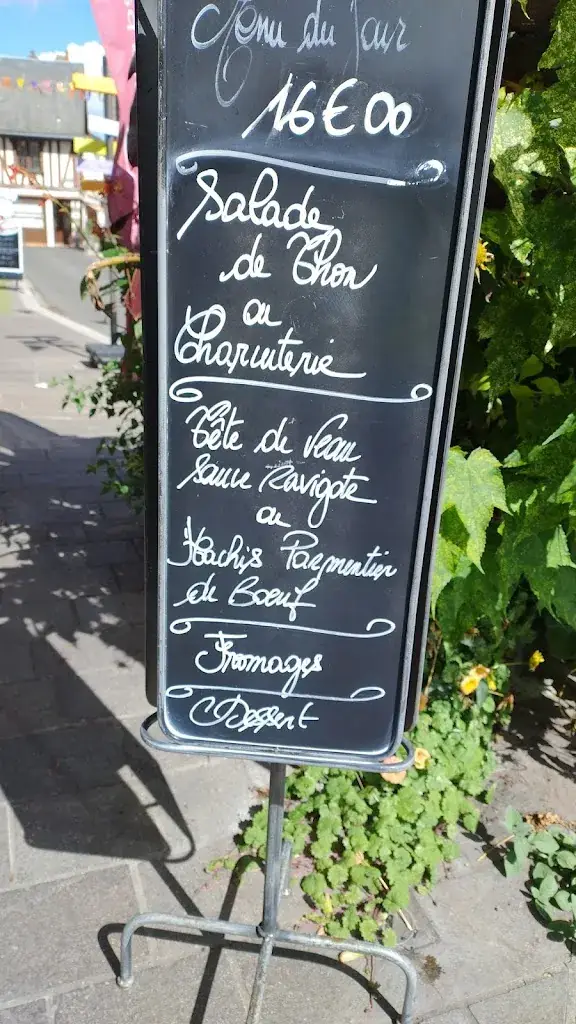 Menu du Jour
16€00
Salade
de Thon
ou
Charcuterie
Tête de Veau
Sauce Ravigote
ou
Hachis Parmentier
de Boeuf
Fromages
Dessert